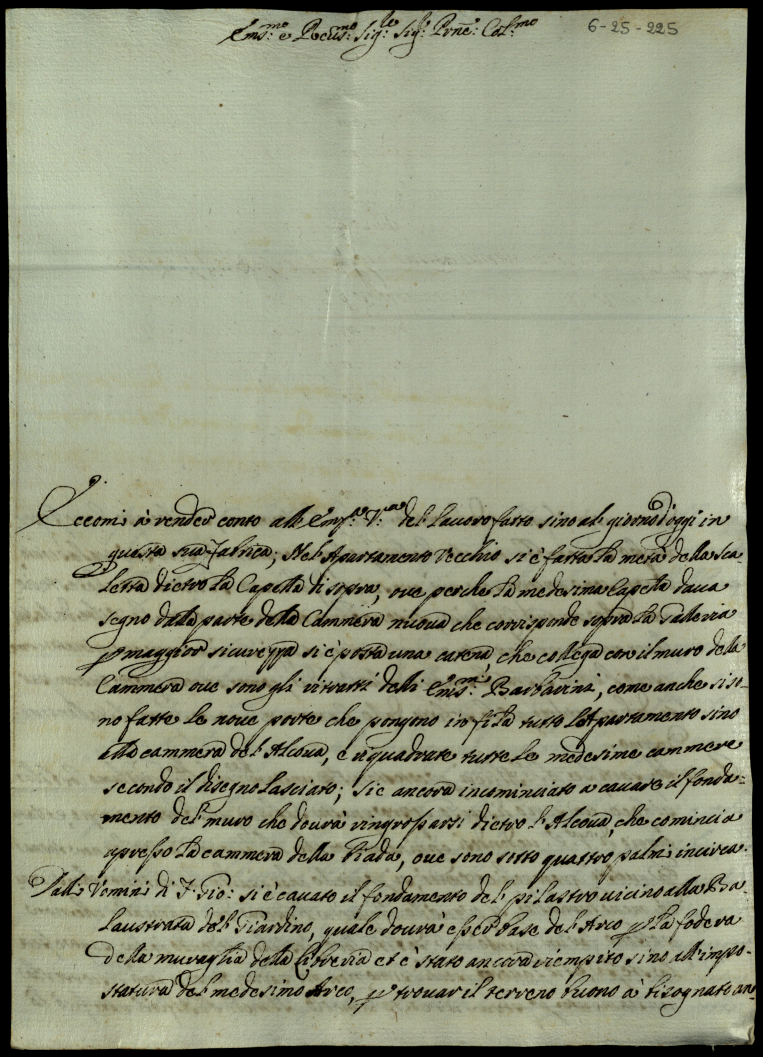 Em.mo e R.mo Sig.re Sig.r Prne: Col.mo
6-25-225
Eccomi à render conto all' Em.za V.ra del lavoro fatto sino al giorno d'oggi in
questa sua fabrica; Nel Apartamento Vecchio si è fatta la metà della Sca=
letta dietro la Capella di sopra, ove perche la medesima Capella dava
segno dalla parte della Cammera nuova che corrisponde sopra la Galleria
p maggior sicurezza si è posta una catena, che collega con il muro della
Cammera ove sono gli ritratti delli Em.mi Barbarini, come anche si so=
no fatte le nove porte che pongono in fila tutto l'Apartamento sino
alla cammera del Alcova, e riquadrate tutte le medesime cammere
secondo il disegno lasciato; Si è ancora incominciato a cavare il fonda=
mento del muro che dovrà ringrossarsi dietro l'Alcova, che comincia
apresso la cammera della, ove sono sotto quattro palmi incirca.
Dalli Uomini di F. Gio: si è cavato il fondamento del pilastro vicino alla Ba=
laustrata del Giardino, quale dovrà esser base del Arco p la fodera
della muraglia della Libreria et è stato ancora riempito sino all'impo=
statura del medesimo Arco, p trovar il terreno buono à bisognato an